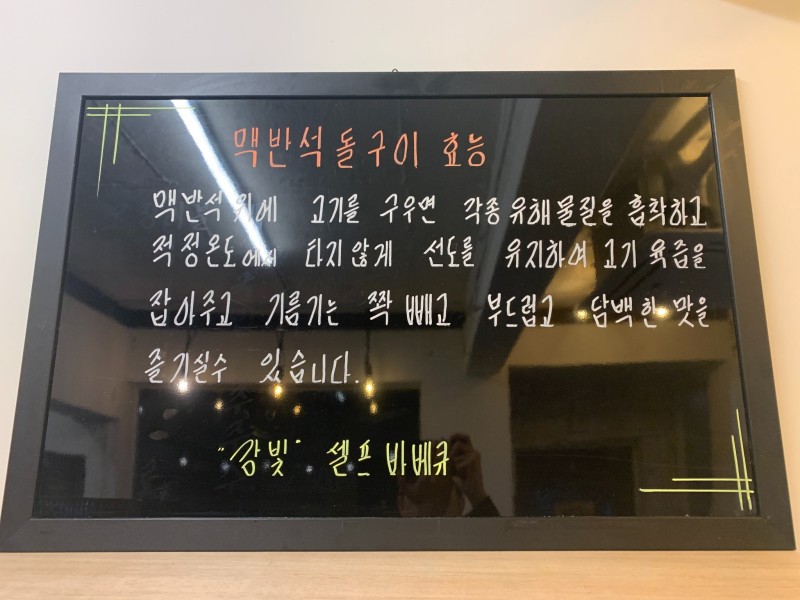 맥반석 돌구이 효능
맥반석 위에 고기를 구우면 각종 유해물질을 흡착하고
적정온도에서 타지않게 선도를 유지하여 고기 육즙을
잡아주고 기름기는 쫙 빼고 부드럽고 담백한 맛을
즐기실수 있습니다.
"강빛" 셀프 바베큐